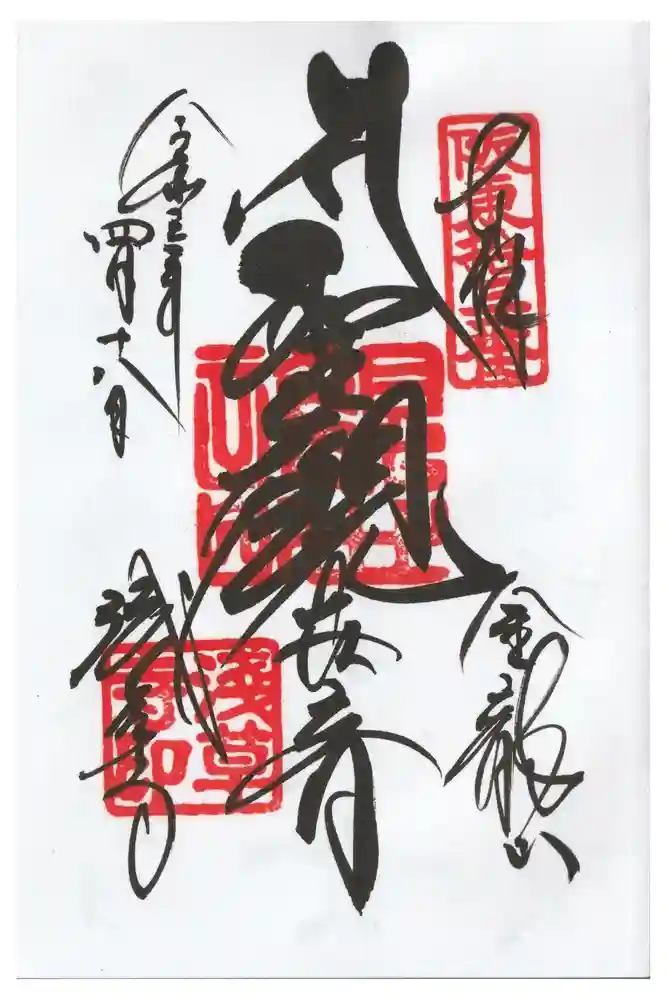 奉拝
阪東拾三番
金龍山
聖観世音
令和三年
四月十八日
浅草寺